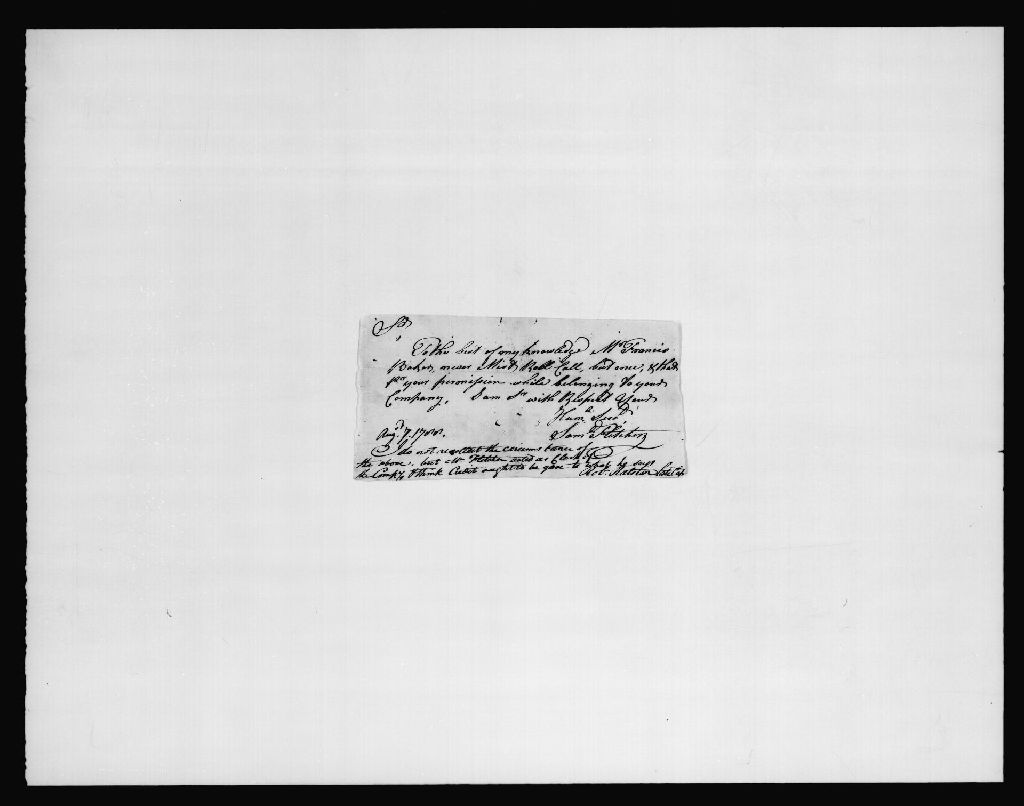 Sr
To the best of my knowledge Mr Francis
Baker, never Mist Roll Call, but once, & that
pr your permission while belonging to your
Company, I am Sr with Respect Your
Humb Servt
Aug 7. 1788. Saml Fletcher
I do not recollect the circumstance of
the above, but Mr Fletcher acted as Clerk of
the Compy I think Credit ought to be gave to what he says
Robt